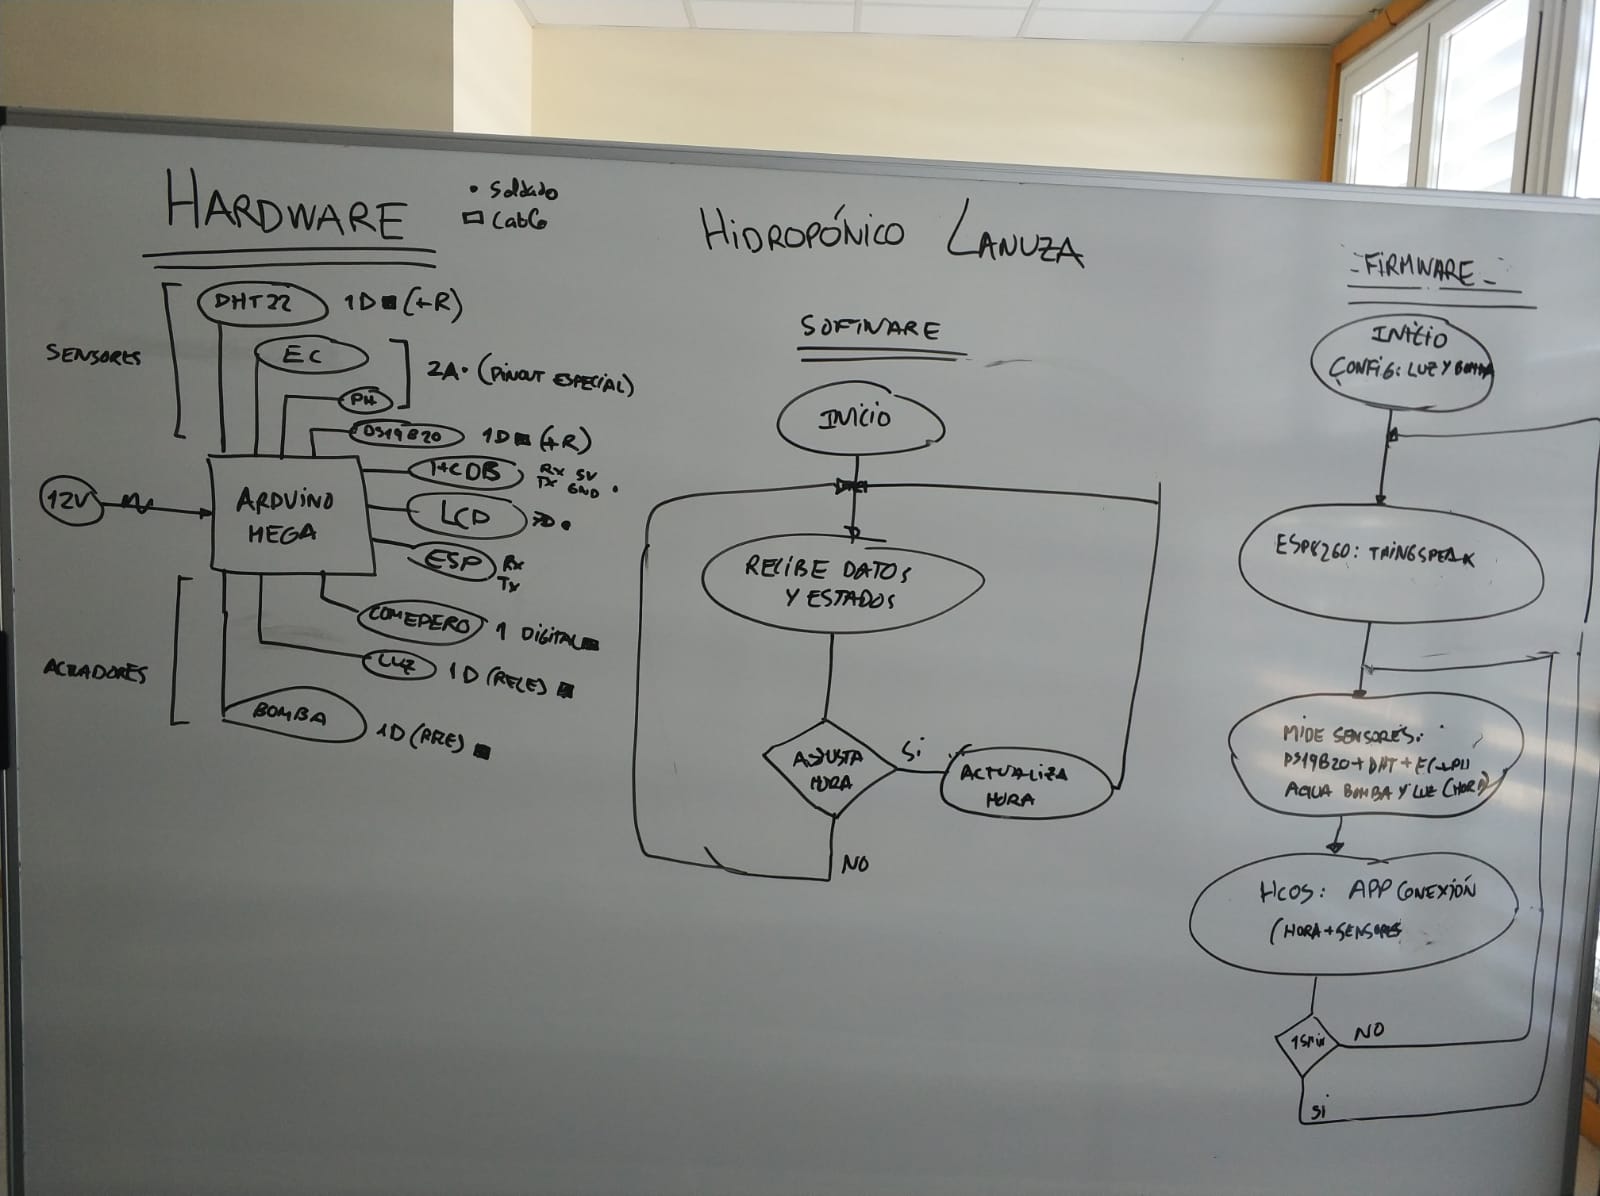 HARDWARE
• Soldado
▭ Cable
SENSORES
DHT22 1D ■ (+R)
EC
PH
2A• (PINOUT ESPECIAL)
DS19B20 1D ■ (+R)
Rx 5V
Tx GND •
12V
ARDUINO
MEGA
LCD 7D •
ESP Rx
Tx
COMEPERO 1 DIGITAL ■
LUZ 1D (RELE) ■
BOMBA 1D
ACTUADORES
HIDROPÓNICO LANUZA
SOFTWARE
INICIO
RECIBE DATOS
Y ESTADOS
AJUSTA
HORA
SI
ACTUALIZA
HORA
NO
-FIRMWARE-
INICIO
CONFIG: LUZ Y BOMBA
ESP8260: THINGSPEAK
MIDE SENSORES:
DS19B20+DHT+EC+PH
BOMBA Y LUZ (HORA)
HC05: APP CONEXIÓN
(HORA+SENSORES
15min
NO
SI